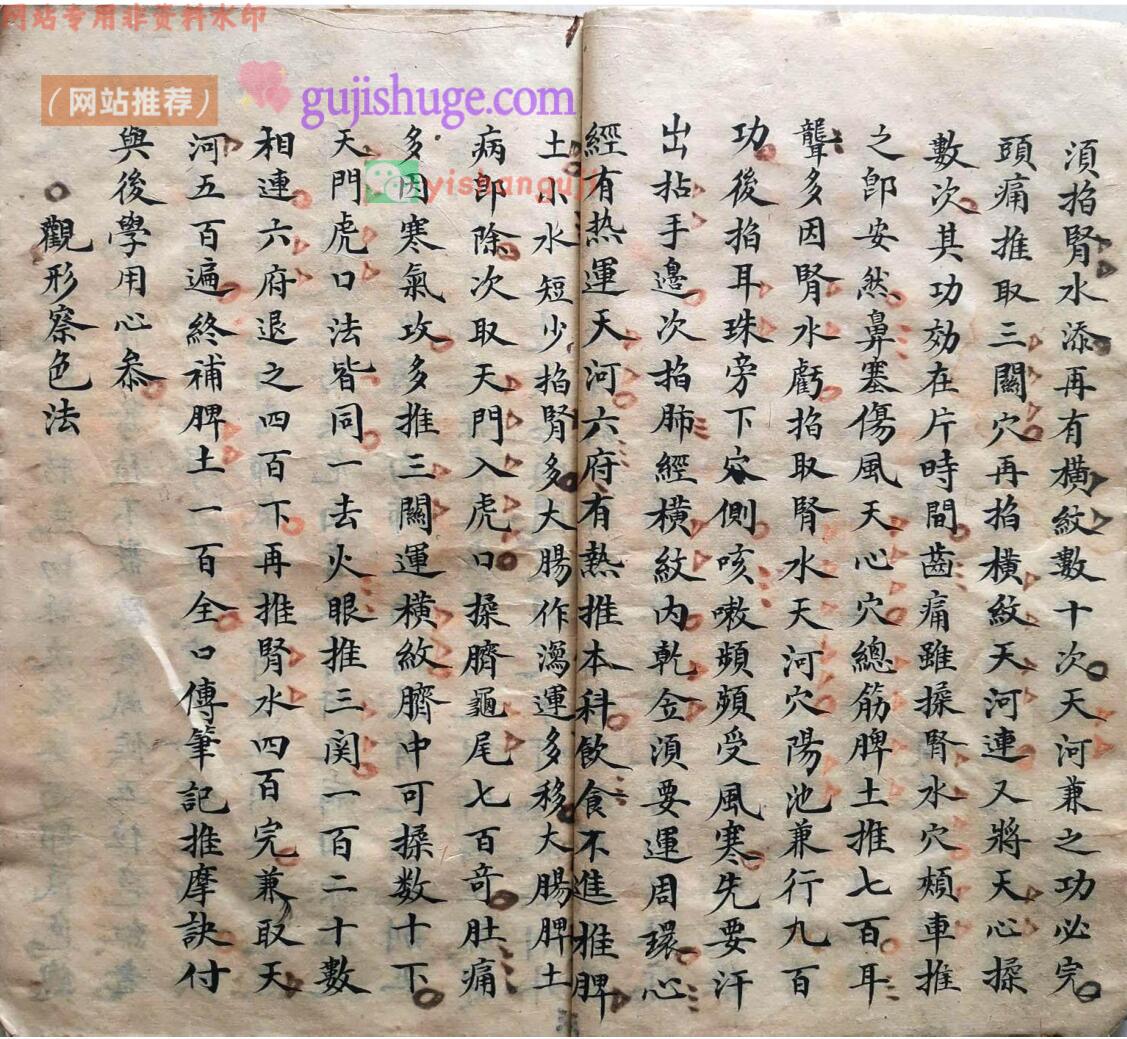 网站专用非资料水印
（网站推荐）
gujishuge.com
yishangu
湏掐腎水添再有橫紋數十次天河兼之功必完
頭痛推取三關穴再掐橫紋天河連又將天心揉
數次其功効在片時間齒痛雖揉腎水穴頰車推
之卽安然鼻塞傷風天心穴總筋脾土推七百耳
聾多因腎水虧掐取腎水天河穴陽池兼行九百
功後掐耳珠旁下穴側咳嗽頻頻受風寒先要汗
出拈手邊次掐肺經橫紋內乾金湏要運周環心
經有热運天河六府有熱推本科飲食不進推脾
土小水短少掐腎多大腸作瀉運多移大腸脾土
病卽除次取天門入虎口揉臍龜尾七百奇肚痛
多因寒氣攻多推三關運橫紋臍中可揉数十下
天門虎口法皆同一去火眼推三関一百二十數
相連六府退之四百下再推腎水四百完兼取天
河五百遍終補脾土一百全口傳筆記推摩訣付
與後學用心叅
觀形察色法